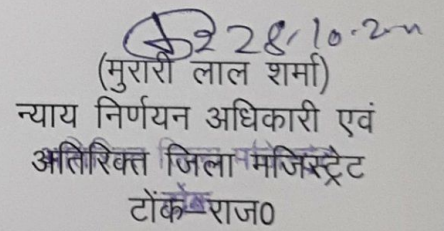 28.10.2
(मुरारी लाल शर्मा)
न्याय निर्णयन अधिकारी एवं
अतिरिक्त जिला मजिस्ट्रेट
टोंक–राज0